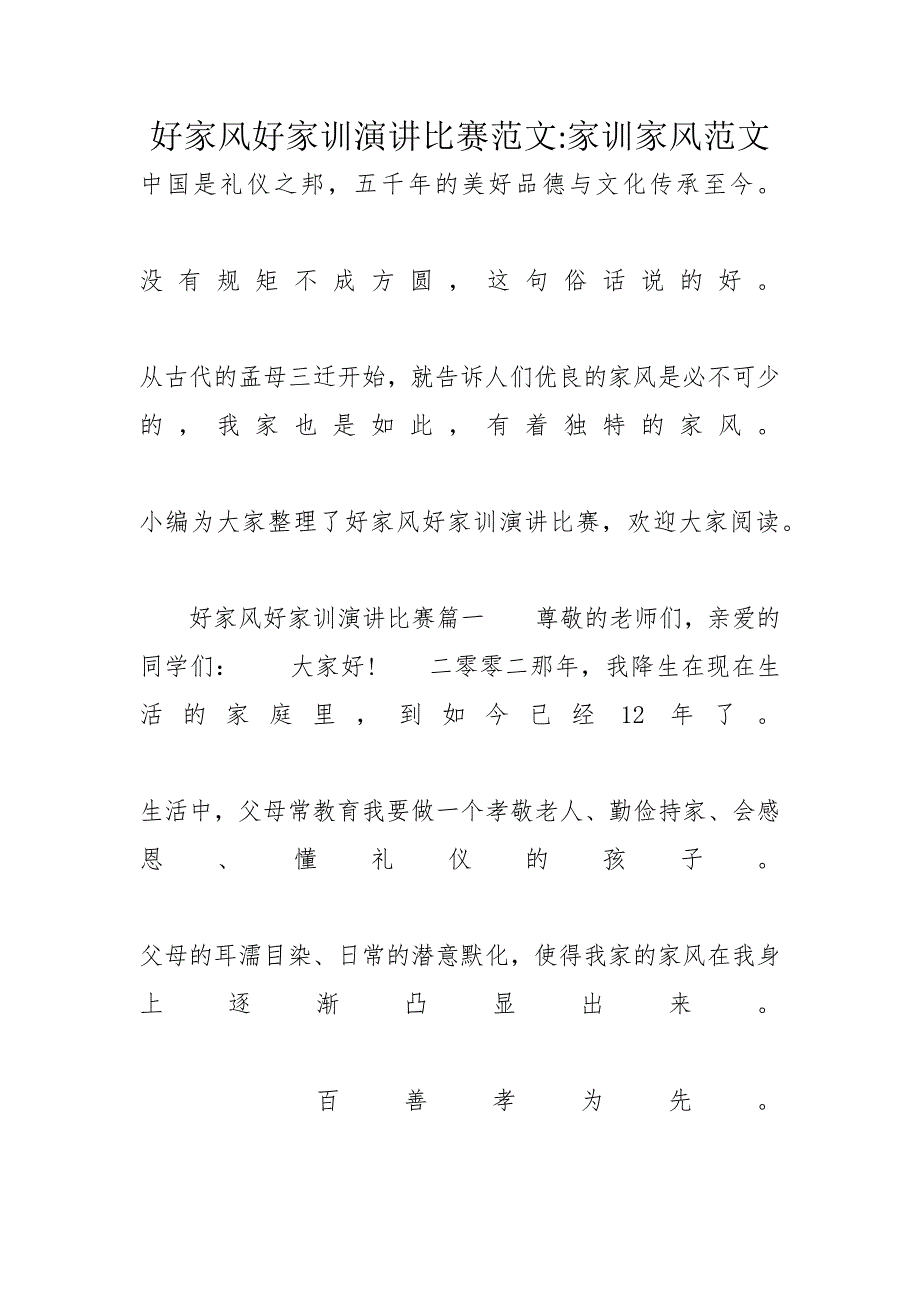 好家风好家训演讲比赛范文:家训家风范文
中国是礼仪之邦，五千年的美好品德与文化传承至今。
没有规矩不成方圆，这句俗话说的好。
从古代的孟母三迁开始，就告诉人们优良的家风是必不可少
的，我家也是如此，有着独特的家风。
小编为大家整理了好家风好家训演讲比赛，欢迎大家阅读。
好家风好家训演讲比赛篇一　　尊敬的老师们，亲爱的
同学们：　　大家好!　　二零零二那年，我降生在现在生
活的家庭里，到如今已经12年了。
生活中，父母常教育我要做一个孝敬老人、勤俭持家、会感
恩、懂礼仪的孩子。
父母的耳濡目染、日常的潜意默化，使得我家的家风在我身
上逐渐凸显出来。
百善孝为先。